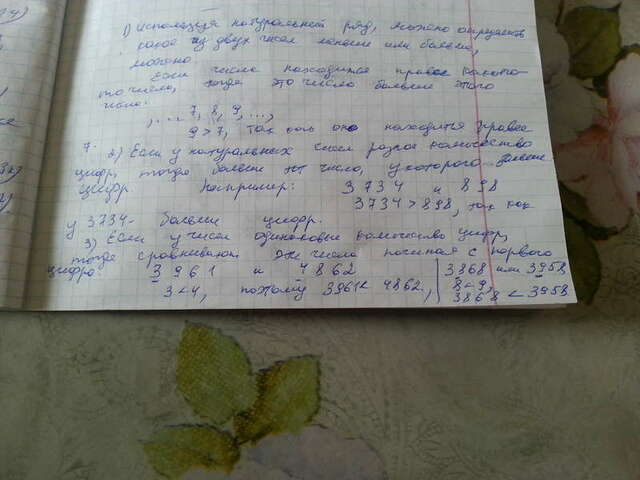 1) Используя натуральный ряд, можно определить
какое из двух чисел меньше или больше,
можно.
Если число находится правее какого-
то числа, тогда это число больше этого
числа.
, ... 7, 8, 9, ...,
9 > 7, так как оно находится правее
7. 2) Если у натуральных чисел разное количество
цифр, тогда больше то число, у которого больше
цифр. Например: 3734 и 898
3734 > 898, так как
у 3734 - больше цифр.
3) Если у чисел одинаковое количество цифр,
тогда сравнивают эти числа начиная с первого
цифра. 3961 и 4862 3868 или 3958
3<4, поэтому 3961< 4862. 8<9,
3868 < 3958